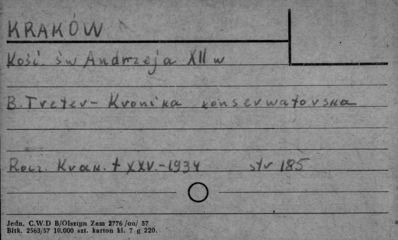 KRAKÓW
Kość. św Andrzeja XII w
B. Treter - Kronika konserwatorska
Rocz. Krak. t XXV - 1934 str 185
Jedn. C.W.D B/Olsztyn Zam 2776 /on/ 57
Bltk. 2563/57 10.000 szt. karton kl. 7 g 220.